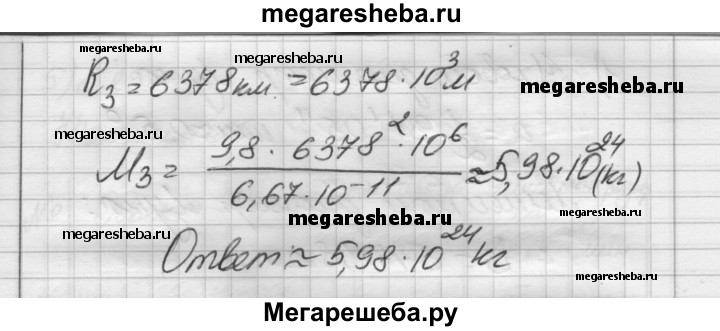 megaresheba.ru
megaresheba.ru megaresheba.ru
R₃ = 6378 км = 6378 · 10³ м megaresheba.ru
megaresheba.ru
M₃ = (9,8 · 6378² · 10⁶) / (6,67 · 10⁻¹¹) ≈ 5,98 · 10²⁴ (кг)
megaresheba.ru megaresheba.ru
Ответ ≈ 5,98 · 10²⁴ кг
megaresheba.ru
Мегарешеба.ру